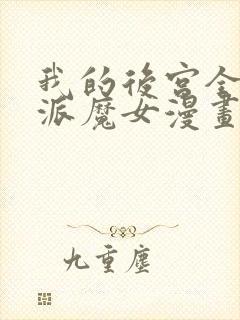 我的後宮全
派魔女漫畫
九重塵